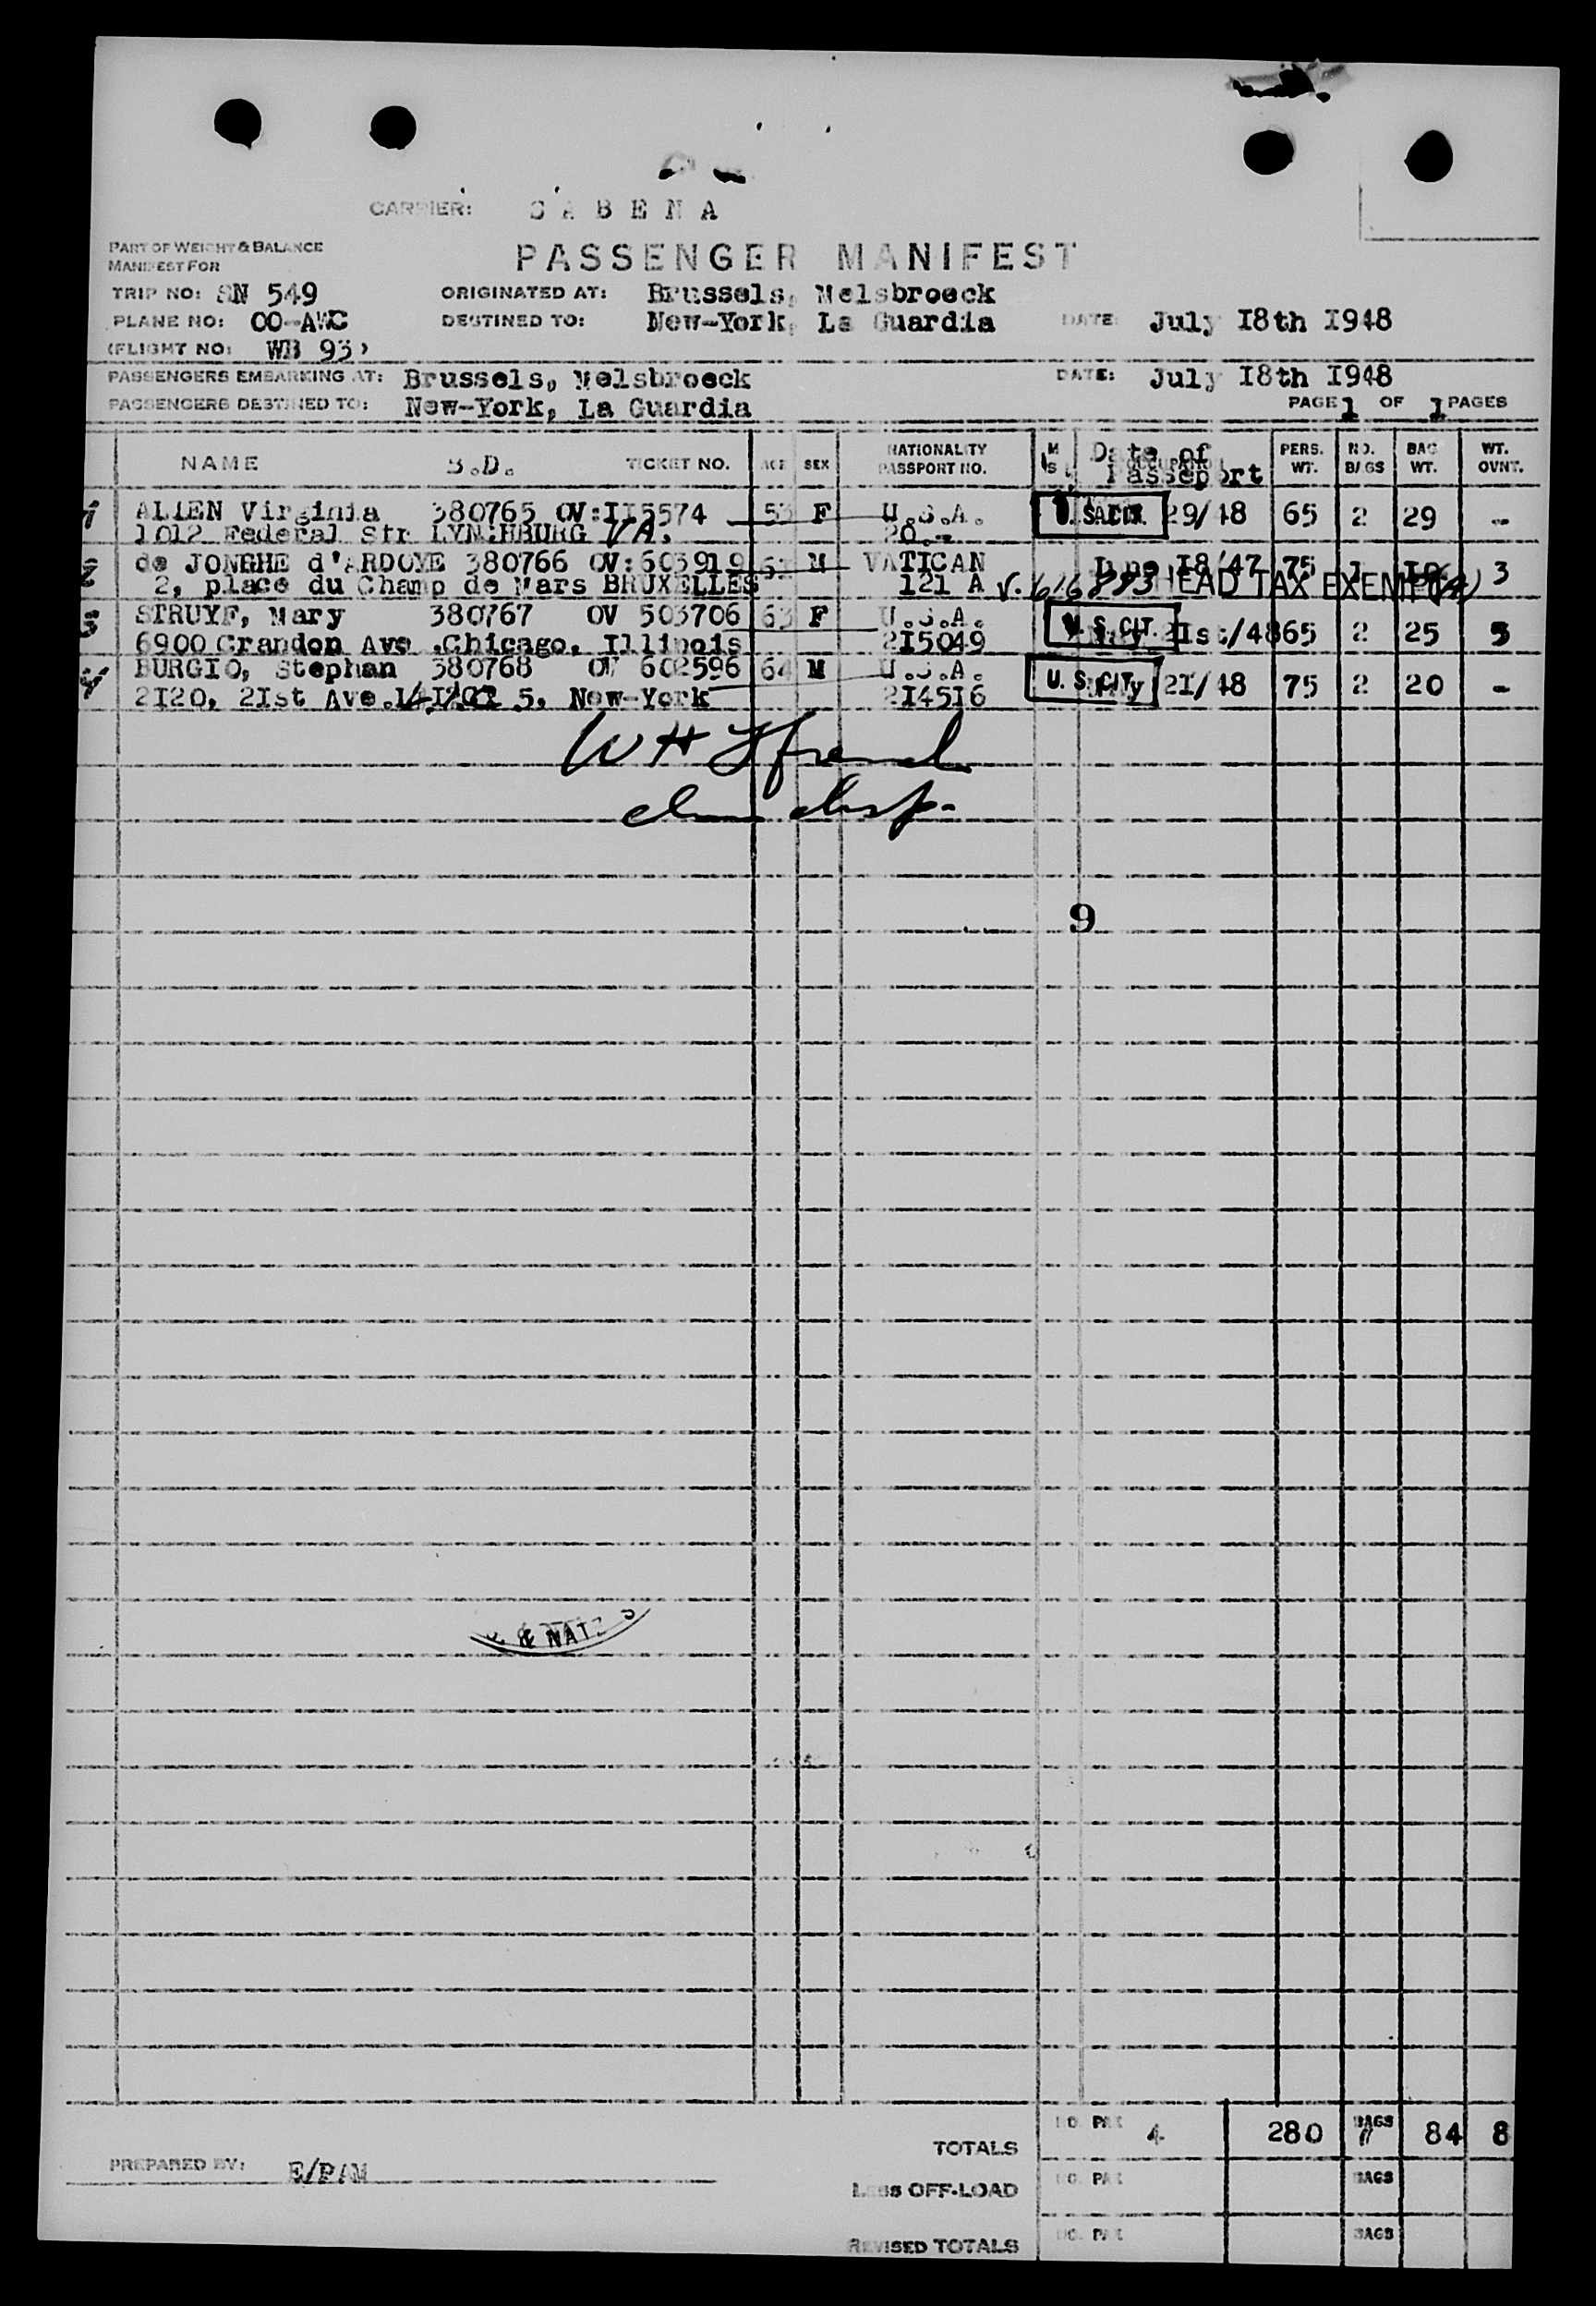 CARRIER: SABENA
PART OF WEIGHT & BALANCE
MANIFEST FOR
PASSENGER MANIFEST
TRIP NO: SN 549 ORIGINATED AT: Brussels, Melsbroeck
PLANE NO: OO-AWC DESTINED TO: New-York, La Guardia DATE: July I8th I948
(FLIGHT NO: WB 93)
PASSENGERS EMBARKING AT: Brussels, Melsbroeck DATE: July I8th I948
PASSENGERS DESTINED TO: New-York, La Guardia PAGE 1 OF 1 PAGES
NAME B.D. TICKET NO. AGE SEX NATIONALITY PASSPORT NO. M S Date of Passeport PERS. WT. NO. BAGS BAG WT. WT. OVNT.
1 ALLEN Virginia 380765 OV:II5574 53 F U.S.A. U.S. CIT. 29/48 65 2 29 -
1012 Federal Str LYNCHBURG VA. 20.-
2 de JONGHE d'ARDOYE 380766 OV:603919 61 M VATICAN June I8/47 75 1 3
2, place du Champ de Mars BRUXELLES 121 A V. 616893 HEAD TAX EXEMPT
3 STRUYF, Mary 380767 OV 503706 63 F U.S.A. U. S. CIT. 2Ist/48 65 2 25 5
6900 Crandon Ave .Chicago, Illinois 2I5049
4 BURGIO, Stephan 380768 OV 602596 64 M U.S.A. U. S. CIT. May 2I/48 75 2 20 -
2I20, 2Ist Ave. 5, New-York 2I45I6
9
& NATZ
TOTALS NO. PAX 4 280 BAGS 7 84 8
PREPARED BY: E/PAM
LESS OFF-LOAD NO. PAX BAGS
REVISED TOTALS NO. PAX BAGS